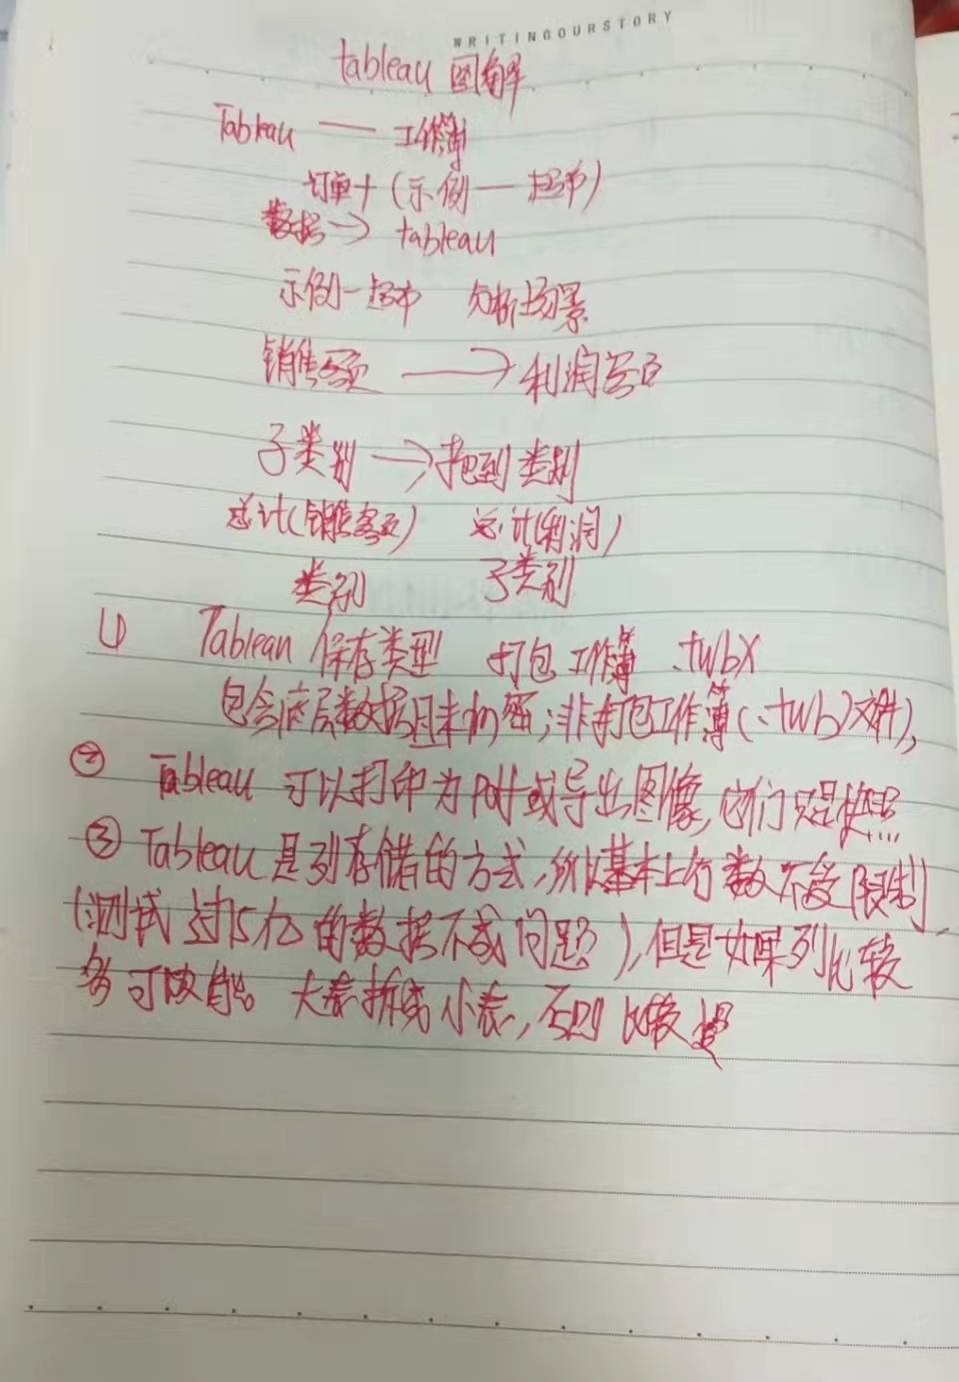 WRITINGOURSTORY
tableau 图解
Tableau — 工作簿
订单+(示例—超市)
数据→ tableau
示例—超市 分析场景
销售额 → 利润
子类别 →拖到类别
总计(销售额) 总计(利润)
类别 子类别
① Tableau 保存类型 打包工作簿 .twbx
包含底层数据且未加密;非打包工作簿(.twb)文件),
② Tableau 可以打印为pdf或导出图像,它们只是快照…
③ Tableau是列存储的方式,所以基本上行数不受限制
(测试过15亿的数据不成问题),但是如果列比较
多可 大表拆成小表,否则比较慢